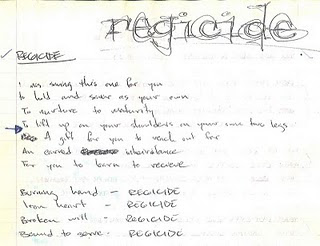 regicide
REGICIDE
I am saving this one for you
to hold and savor as your own
To nurture to maturity
To lift up on your shoulders on your own two legs
A gift for you to reach out for
An earned inheritance
For you to learn to receive
Burning hand - REGICIDE
Iron heart - REGICIDE
Broken will - REGICIDE
Bound to serve - REGICIDE